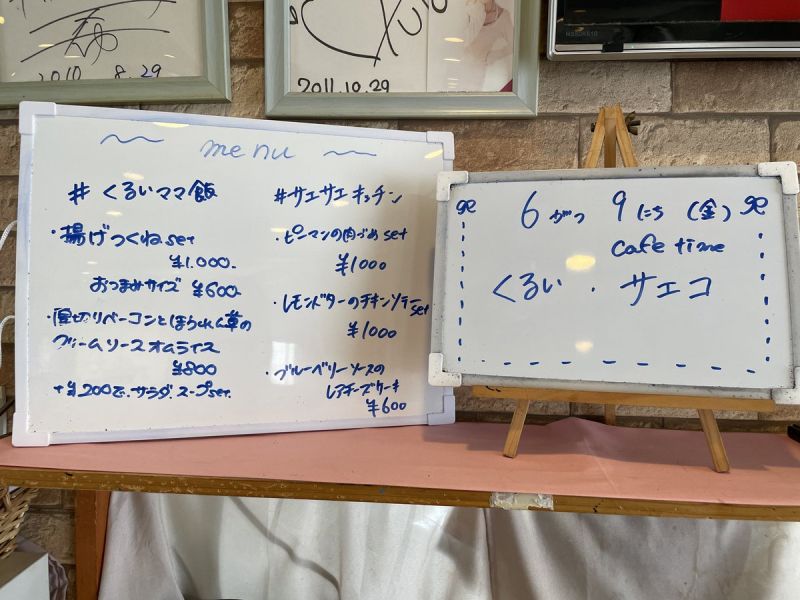 2010.8.29
2011.10.29
menu
#くるいママ飯
・揚げつくねset
¥1.000.
おつまみサイズ ¥600.
・厚切りベーコンとほうれん草の
クリームソースオムライス
¥800
+¥200で.サラダ.スープset.
#サエサエキッチン
・ピーマンの肉づめset
¥1000
・レモンバターのチキンソテーset
¥1000
・ブルーベリーソースの
レアチーズケーキ
¥600
6がつ 9にち (金)
cafe time
くるい . サエコ